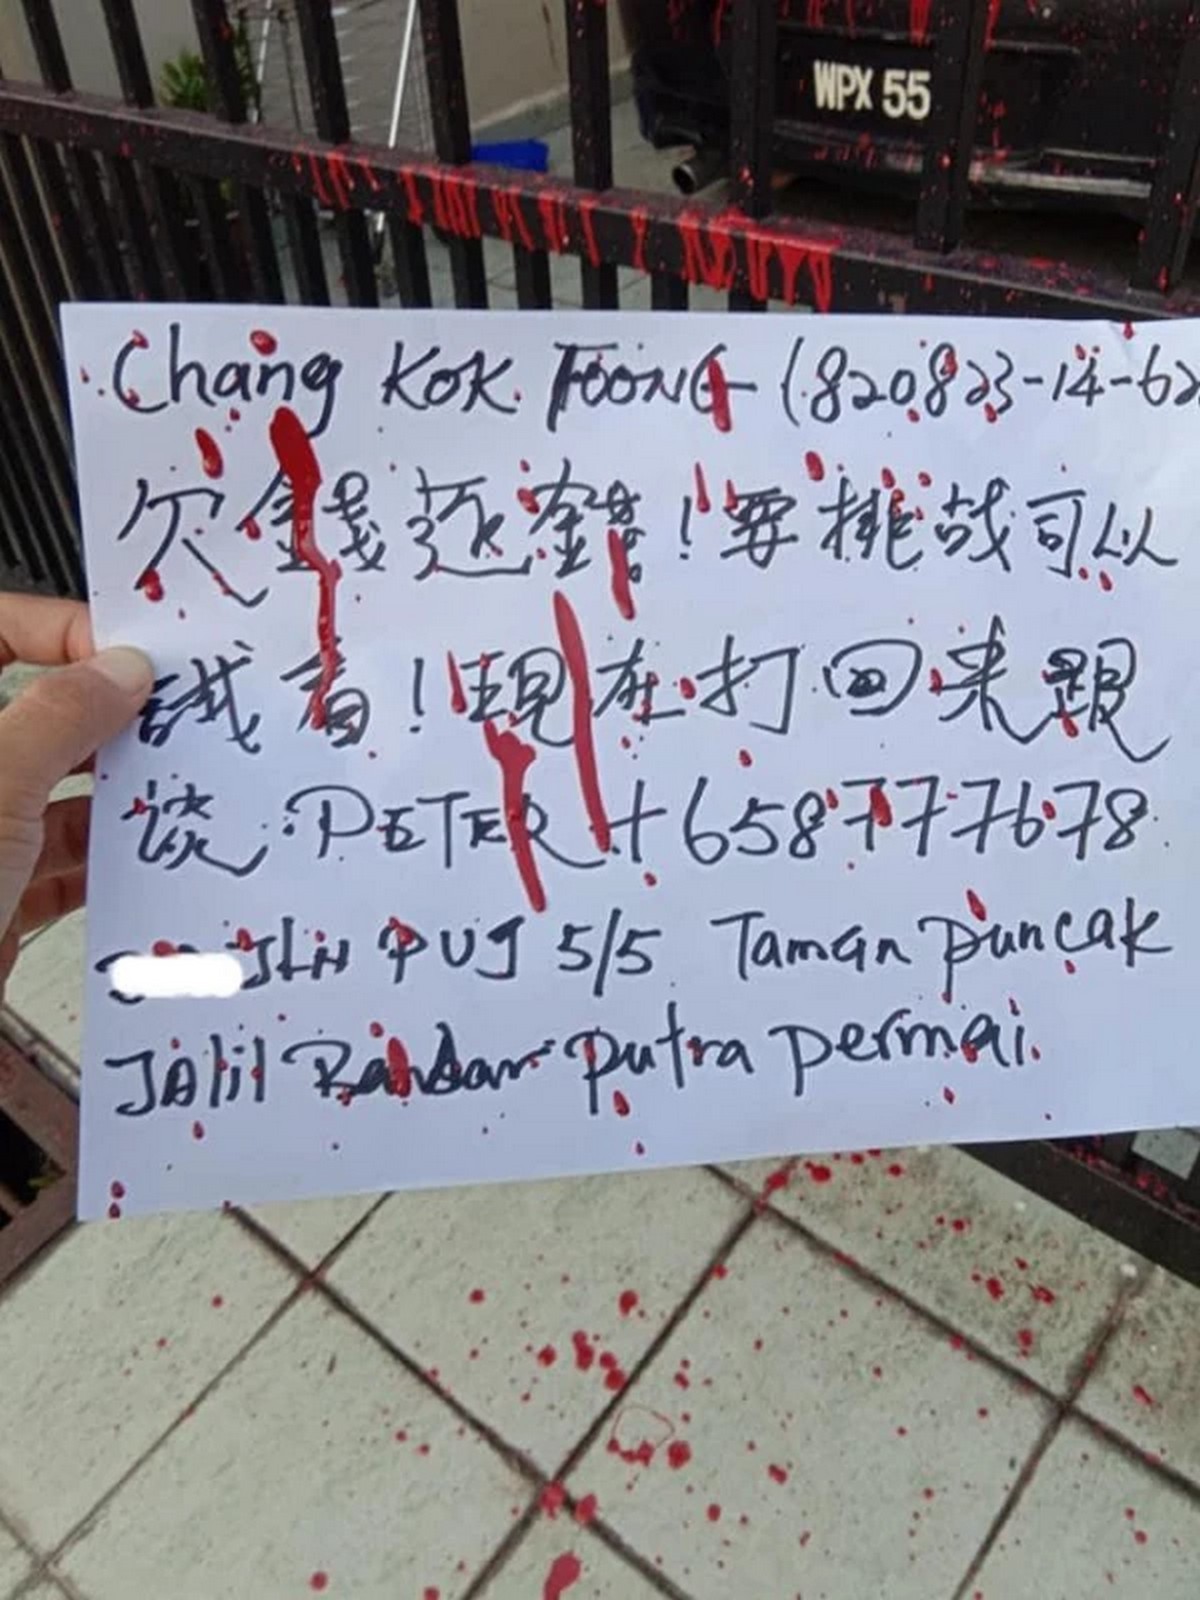 WPX 55
Chang KOK FOONG (820823-14-62
欠錢还錢！要挑战可以
試看！現在打回来跟
谈 PETER +6587777678
JLN PUJ 5/5 Taman Puncak
Jalil Bandar Putra Permai.